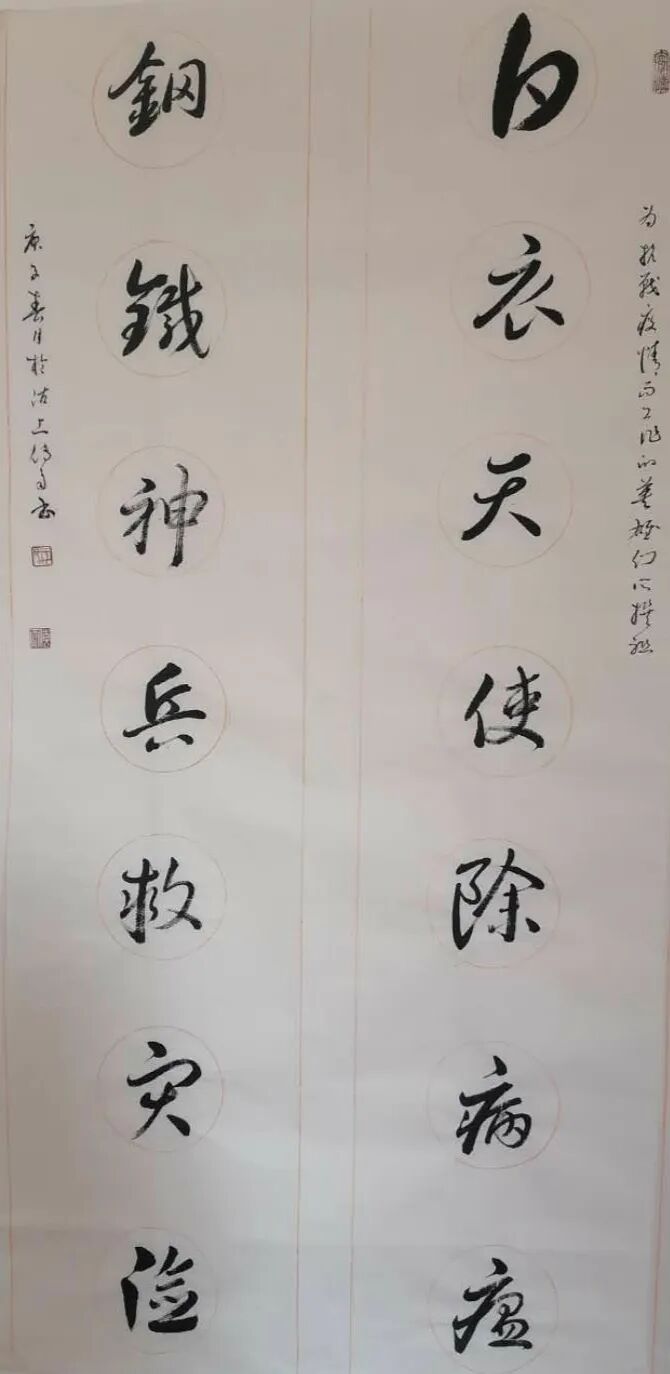 为抗战疫情而工作的英雄们撰联
白衣天使除病瘟
鋼鐵神兵救灾险
庚子春月於沽上书